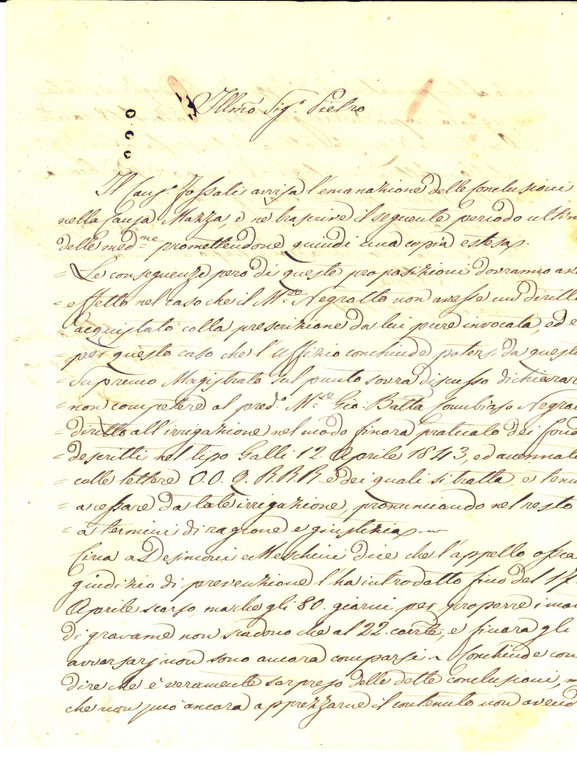 Illmo Sigr. Pietro
Il Caus.o Fossati avvisa l'emanazione delle Conclusioni
nella Causa Mazza, e ne trascrive il seguente periodo ultim
delle medme promettendone quindi una copia estesa.
= Le conseguenze però di queste proposizioni dovranno av
= effetto nel caso che il M.se Negrotto non avesse un diritto
= acquistato colla prescrizione da lui pure invocata, ed è
= per questo caso che l'Uffizio conchiude potersi da questo
= Supremo Magistrato sul punto sovra discusso dichiarar
= non competere al pred.o M.se Gio: Batta Cambiaso Negro
= diritto all'irrigazione nel modo finora praticato dei fond
= descritti nel tipo Galli 12. Aprile 1843, ed accennat
= colle lettere O.O. Q. R.R.R. e dei quali si tratta, e tenu
= a cessare da tale irrigazione, pronunciando nel resto
= a termini di ragione e giustizia.
Circa a Desimoni e Meschini dice che l'appello ossia
giudizio di prevenzione l'ha introdotto fino del 17
Aprile scorso, ma che gli 80. giorni per proporre i mo
di gravame non scadono che al 22. corrte, e finora gli
avversarj non sono ancora comparsi. Conchiude con
dire che è veramente sorpreso delle dette conclusioni, m
che non può ancora apprezzarne il contenuto non avend